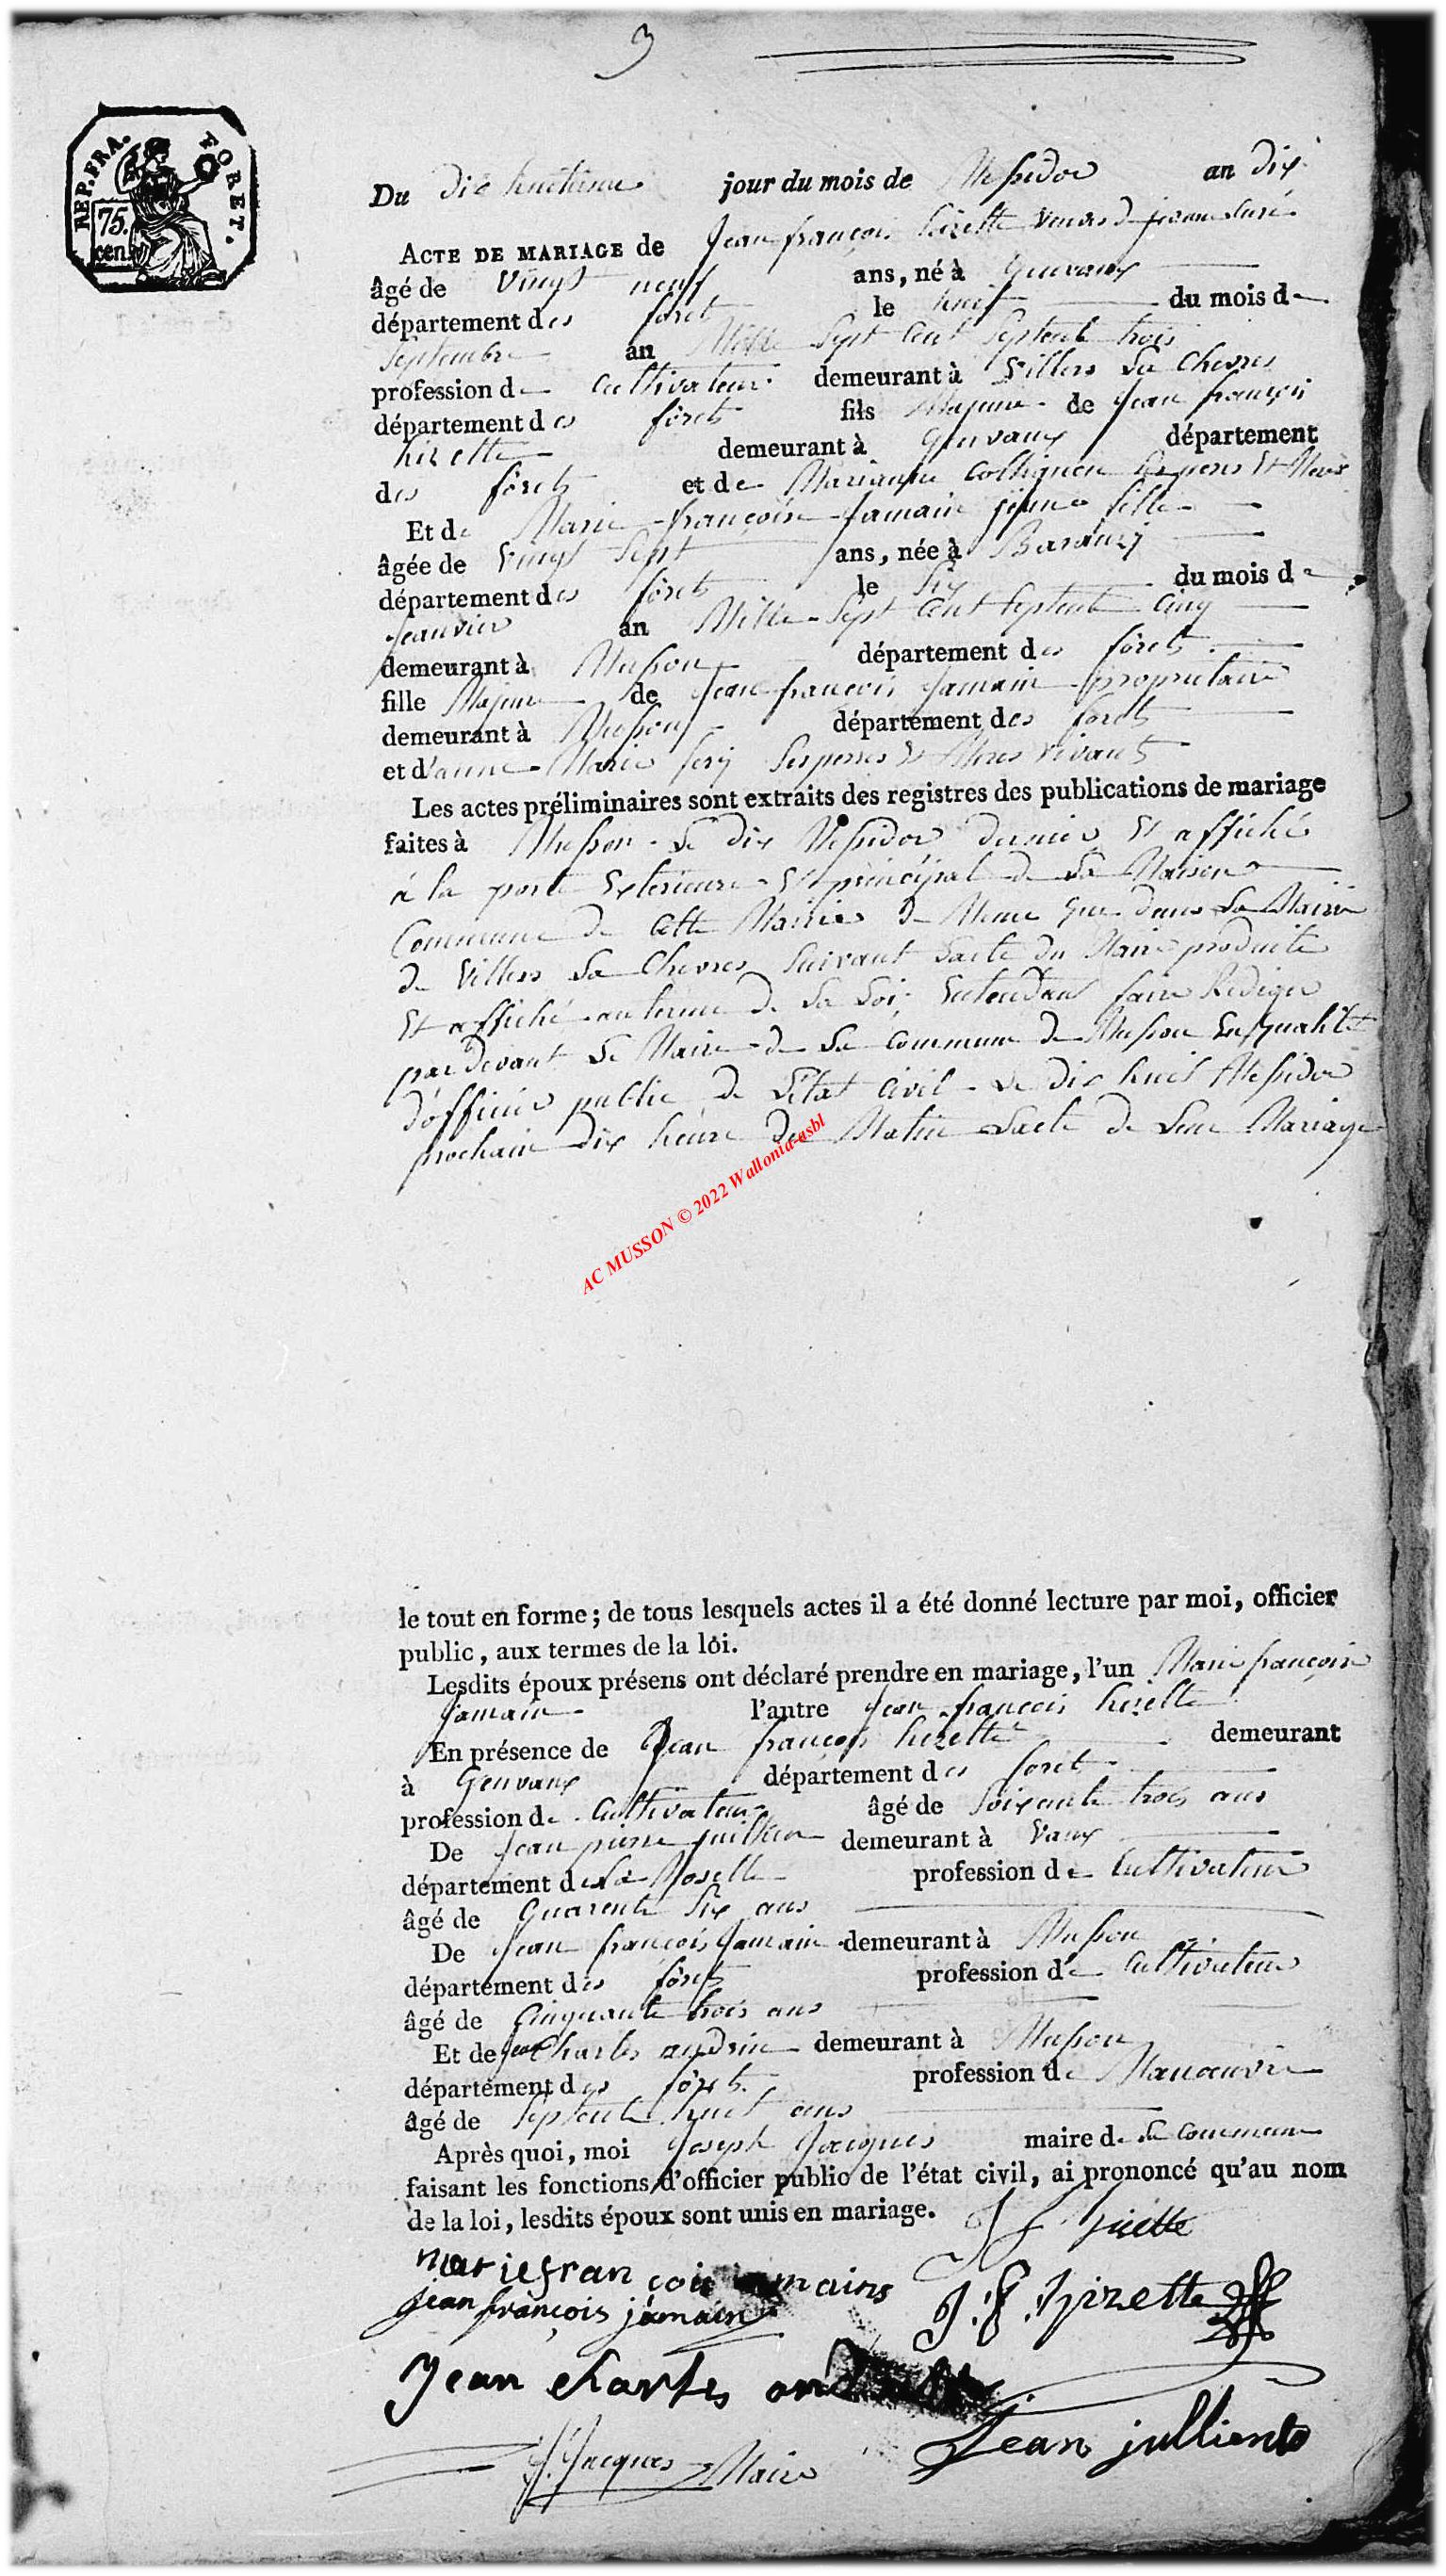 3
REP. FRA. FORET.
75.
cen.
Du dix huitieme jour du mois de Messidor an dix
ACTE DE MARIAGE de Jean françois hizette
âgé de Vingt neuf ans, né à Gennvaux
département des forets le huit du mois de
Septembre an Mille Sept Cent Septente trois
profession de Cultivateur demeurant à Villers La Chevres
département des forêts fils Majeure de Jean françois
hizette demeurant à Genvaux département
des forêts et de Marianne Collignon
Et de Marie françoise Jamain jeune fille
âgée de Vingt Sept ans, née à Baranzy
département des forêts le Six du mois de
Jeanvier an Mille Sept Cent Septente Cinq
demeurant à Musson département des forêts
fille Majeure de Jean françois Jamain propriétaire
demeurant à Musson département des forets
et d'anne Marie Sesperes Et Meres Vivants
Les actes préliminaires sont extraits des registres des publications de mariage
faites à Musson Le dix Messidor dernier Et affiché
à la porte Exterieure Et principal de La Maison
Commune de Cette Mairie de Meme que dans La Mairie
de Villers La Chevres Suivant Lacte du Maire produite
Et affiché au terme de La Loi, Entendant faire Rediger
par devant Le Maire de La Commune de Musson En qualité
d'officier public de L'état Civil Le dix huit Messidor
prochain dix heure du Matin Lacte de Leur Mariage
AC MUSSON © 2022 Wallonia-asbl
le tout en forme; de tous lesquels actes il a été donné lecture par moi, officier
public, aux termes de la loi.
Lesdits époux présens ont déclaré prendre en mariage, l'un Marie françoise
Jamain l'autre Jean françois hizette
En présence de Jean françois hizette demeurant
à Genvaux département des foret
profession de Cultivateur âgé de Soixante trois ans
De Jean pierre jullien demeurant à Vaux
département de La Moselle profession de Cultivateur
âgé de Quarente Six ans
De Jean françois Jamain demeurant à Musson
département des forêts profession de Cultivateur
âgé de Cinquante trois ans
Et de Jean Charles andrin demeurant à Musson
département des forêts profession de Manœuvre
âgé de Septente huit ans
Après quoi, moi Joseph Jacques maire de La Commune
faisant les fonctions d'officier public de l'état civil, ai prononcé qu'au nom
de la loi, lesdits époux sont unis en mariage.
J f hizette
mariefran cois mains
jean françois jamain J. F. hizette
Jean charles
Jean jullients
J. Jacques Maire